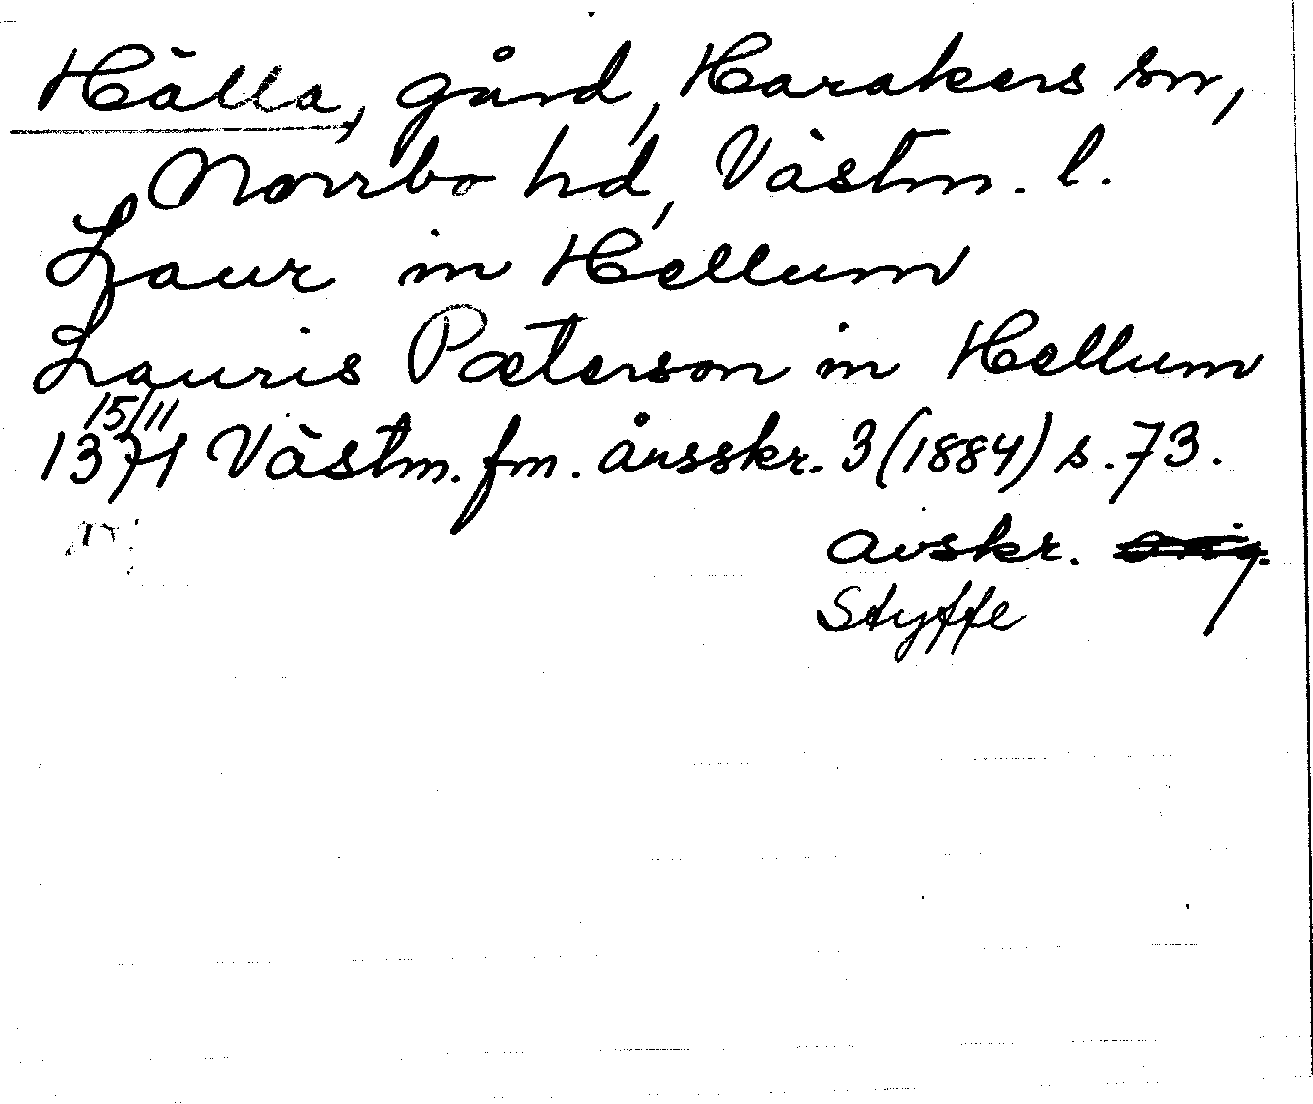 Hälla, gård, Harakers sn,
Norrbo hd, Västm. l.
Laur in Hellum
Lauris Pæterson in Hellum
15/11
1371 Västm. fm. årsskr. 3 (1884) s. 73.
avskr. orig.
Styffe